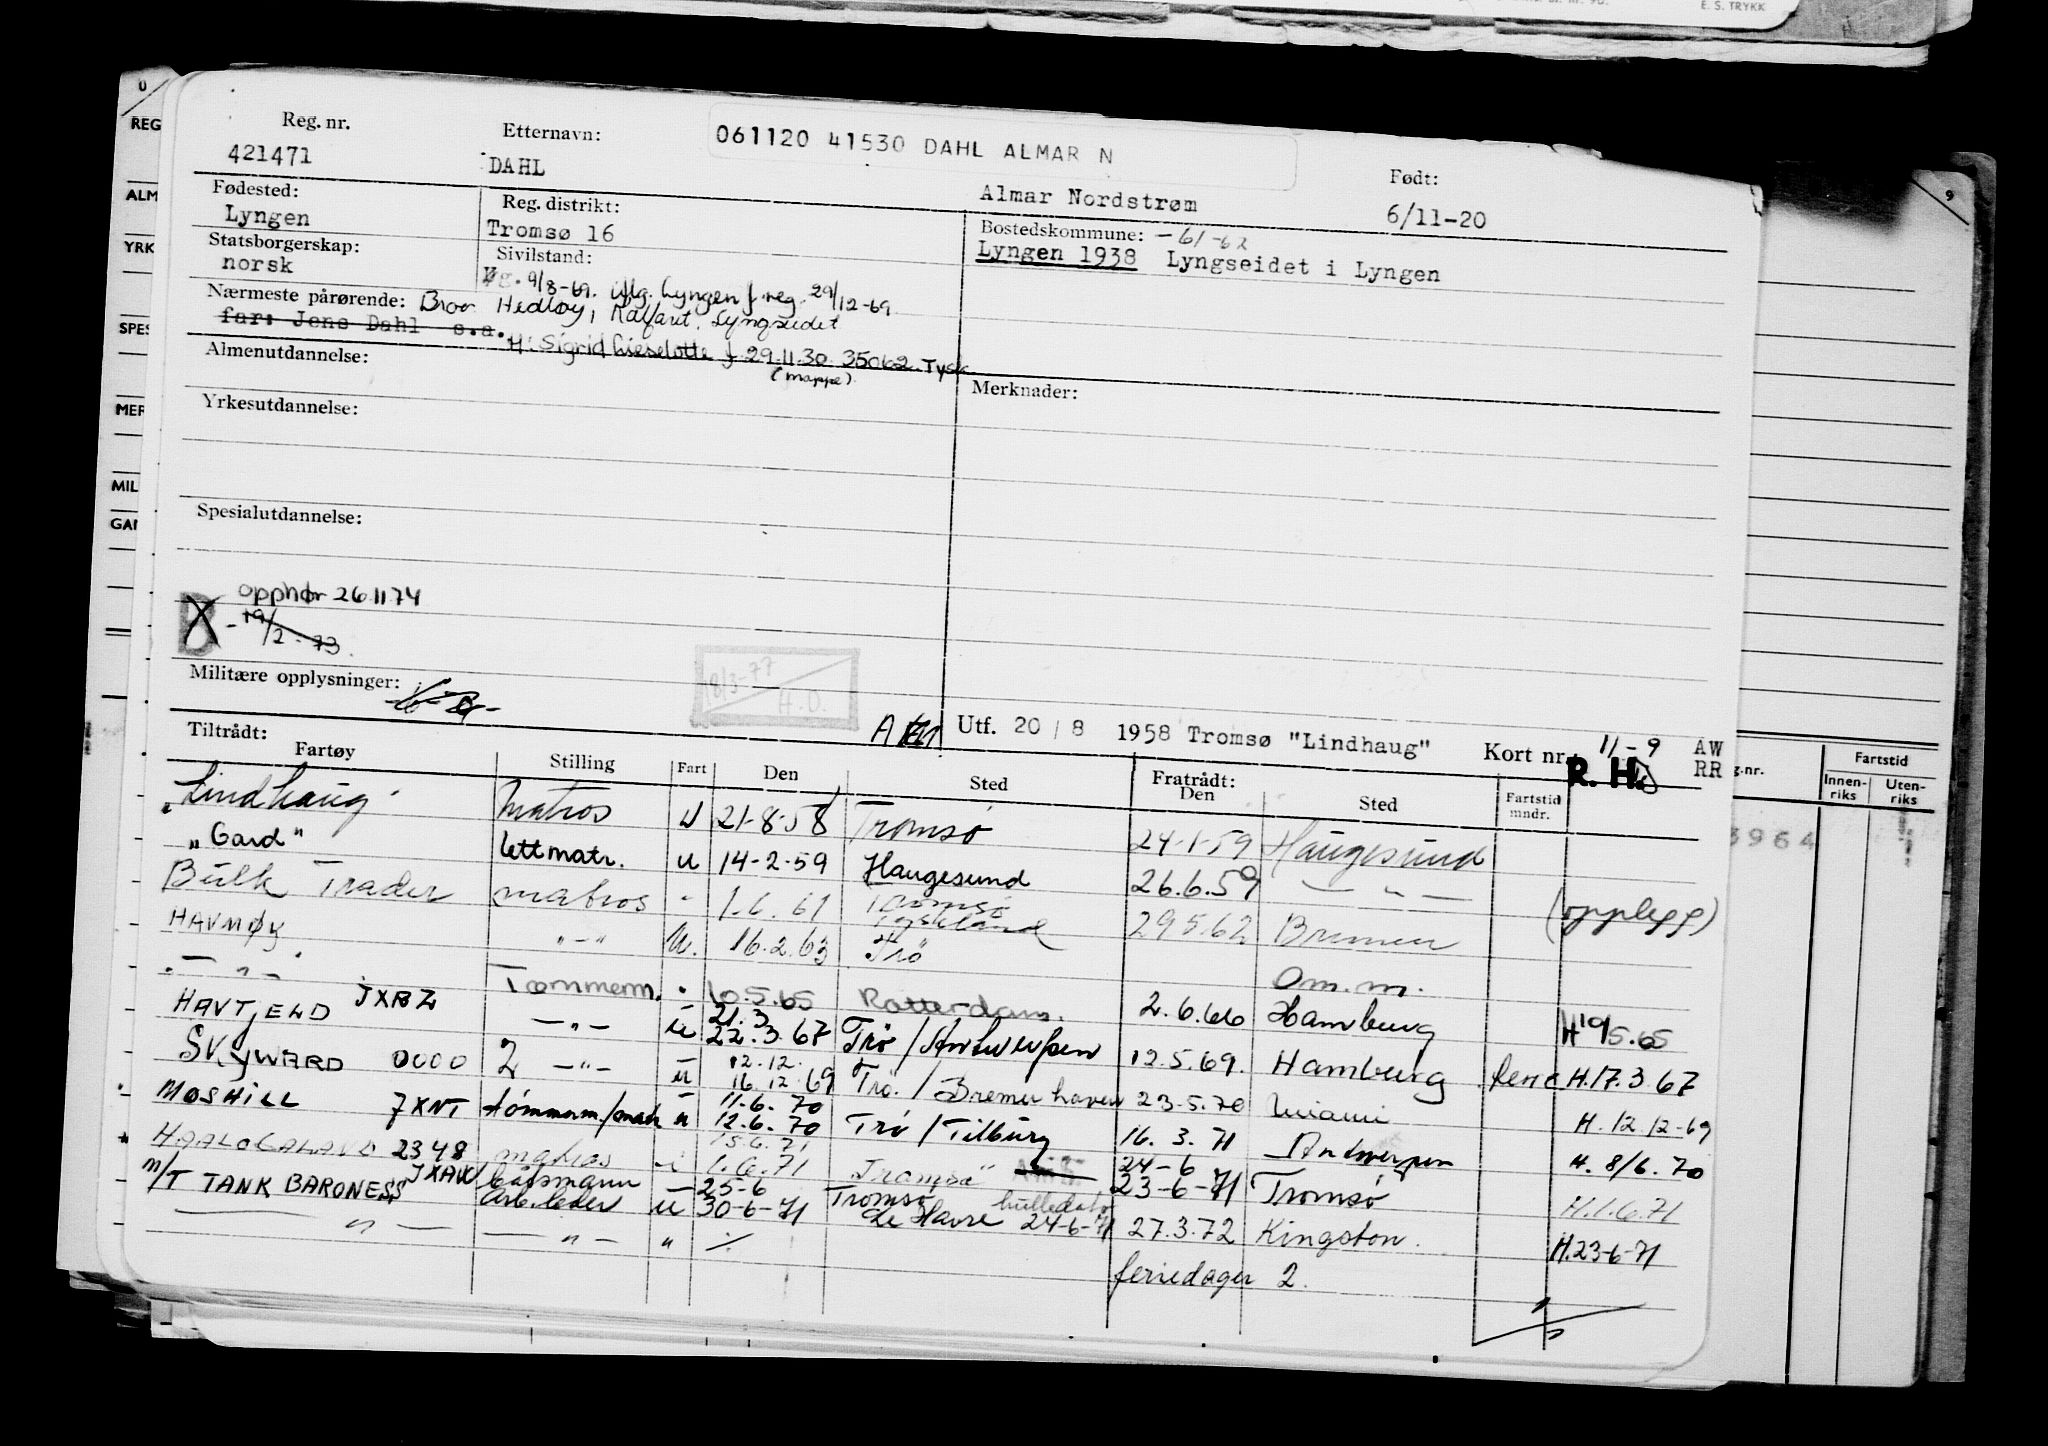 E. S. TRYKK
Reg. nr. Etternavn: 061120 41530 DAHL ALMAR N Født:
421471 DAHL Almar Nordstrøm 6/11-20
Fødested: Reg. distrikt: Bostedskommune: -61-62
Lyngen Tromsø 16 Lyngen 1938 Lyngseidet i Lyngen
Statsborgerskap: Sivilstand:
norsk g. 9/8-69. Lyngen f. reg. 29/12-69
Nærmeste pårørende: Bror Hedley, Kalfaret, Lyngseidet
far: Jens Dahl s.a.
H: Sigrid Lieselotte f. 29.11.30 35062 Tysk
(mappe)
Almenutdannelse:
Merknader:
Yrkesutdannelse:
Spesialutdannelse:
opphør 26 11 74
B - 19/2-73.
Militære opplysninger:
18/3-77
H.O.
Utf. 20/8 1958 Tromsø "Lindhaug" Kort nr. 11-9 AW
R. H. RR
Tiltrådt: Fratrådt:
Fartøy Stilling Fart Den Sted Den Sted Fartstid mndr.
"Lindhaug" Matros U 21-8-58 Tromsø 24-1-59 Haugesund
"Gard" lettmatr. u 14-2-59 Haugesund 26.6.59 — " — (opplegg)
Bulk Trader matros " 1.6.61 Tromsø Tyskland 29 5.62 Bremen
HAVMØY "-" U. 16.2.63 Trø Om.m.
— " — Tømmerm. " 10.5.65 Rotterdam. 2.6.66 Hamburg H 10/5.65
HAVFJELD JXBZ — " — u 21.3 22.3.67 Trø / Antwerpen 12.5.69. Hamburg ferie H.17.3.67
SKYWARD 0000 2 — " — u 12.12. 16.12.69 Trø. / Bremerhaven 23.5.70 Miami H. 12.12-69
MOSHILL JXNT tømmerm./matr u 11-6.70 12.6.70 Trø / Tilbury 16.3.71 Antwerpen H. 8/6.70
HAALOGALAND 2348 matros u 15.6.71 1.6.71 Tromsø 24-6 23-6-71 Tromsø H.1.6.71
M/T TANK BARONESS JXAW båtsmann arb.leder u 25-6 30-6-71 Tromsø le Havre hulledato 24-6-71 27.3.72 Kingston. H.23-6-71
— " — — " — " ./. feriedager 2.
REG
ALM
YRK
SPES
MER
MIL
GAR
9
g.nr. Fartstid
Innen-riks Uten-riks
3964